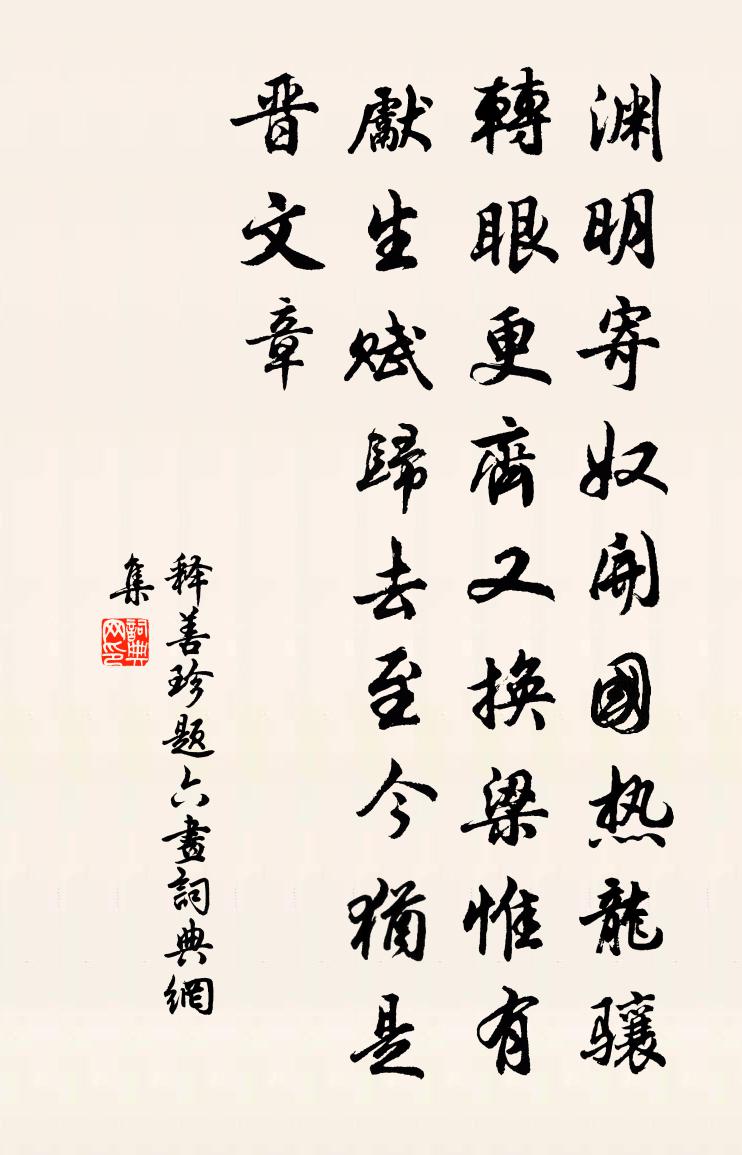 渊明寄奴開國热龍骧
轉眼更齊又換梁惟有
獻生赋歸去至今猶是
晋文章
释善珍题六畫詞典網
集
詞典
网印